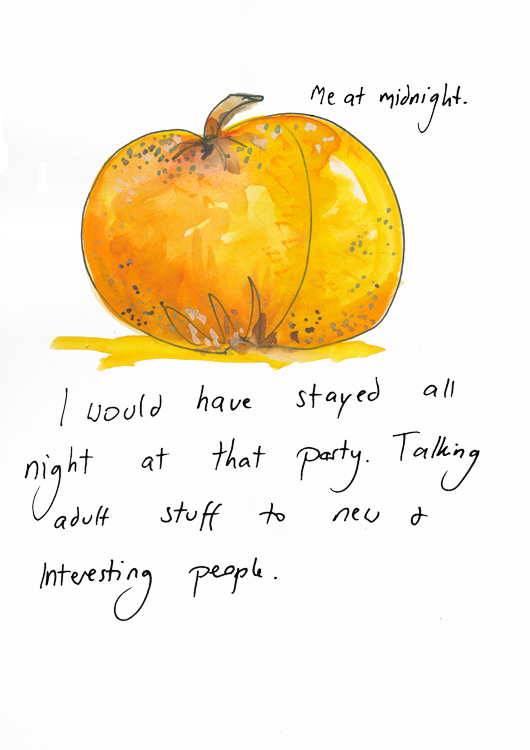 Me at midnight.
I would have stayed all
night at that party. Talking
adult stuff to new &
Interesting people.